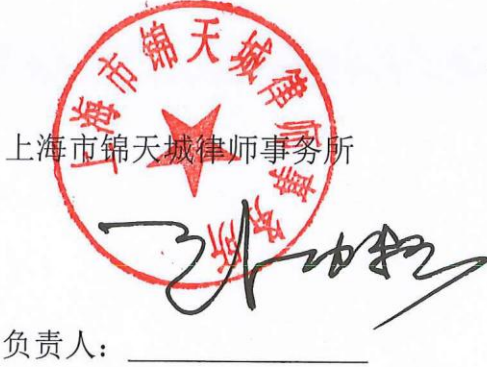 上海市锦天城律师事务所
上海市锦天城律师事务所
负责人：